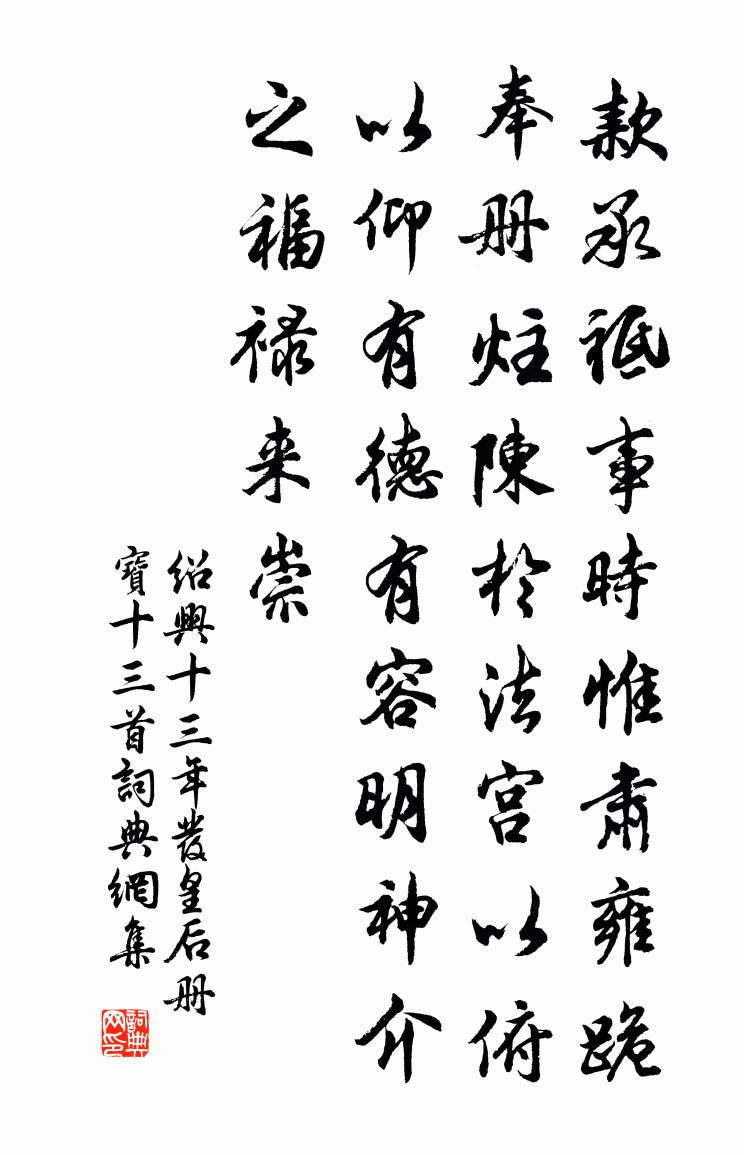 款承祗事時惟肅雍跪
奉册炷陳於法宮以俯
以仰有德有容明神介
之福禄来崇
紹興十三年發皇后册
寶十三首詞典網集
詞典网印